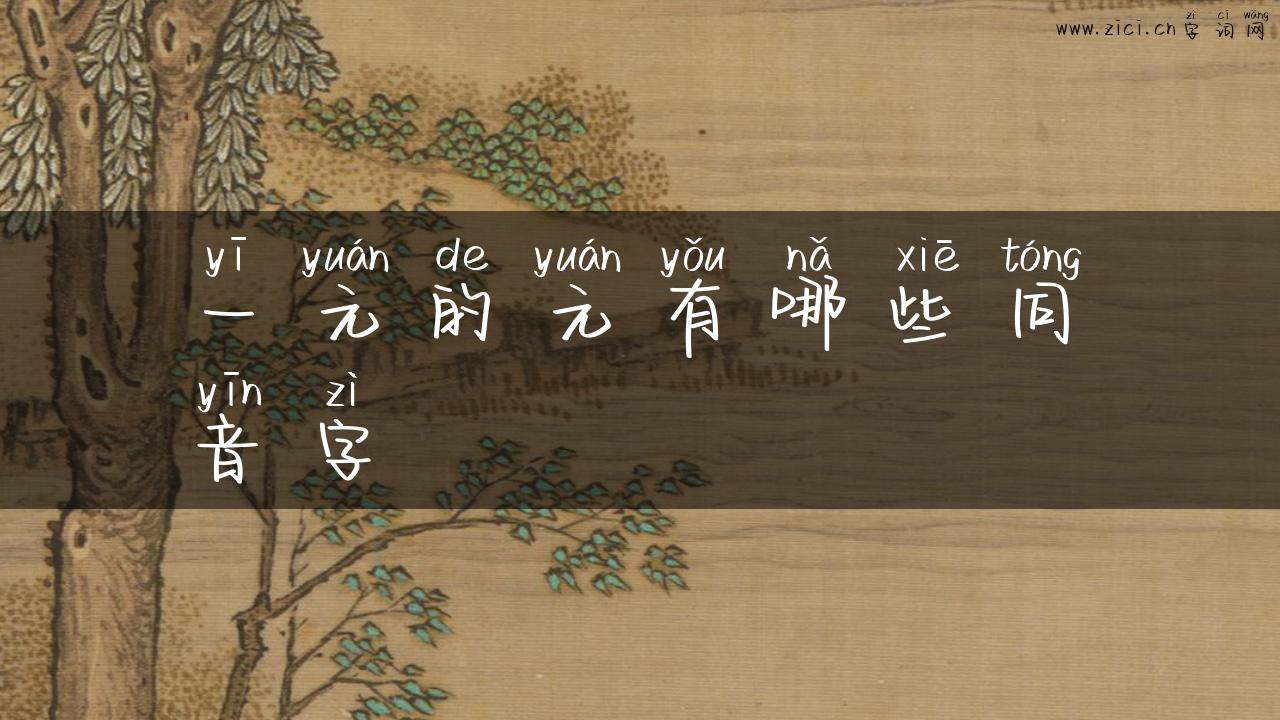 zì cí wǎng
www.zici.cn 字词网
yī yuán de yuán yǒu nǎ xiē tóng
一元的元有哪些同
yīn zì
音字